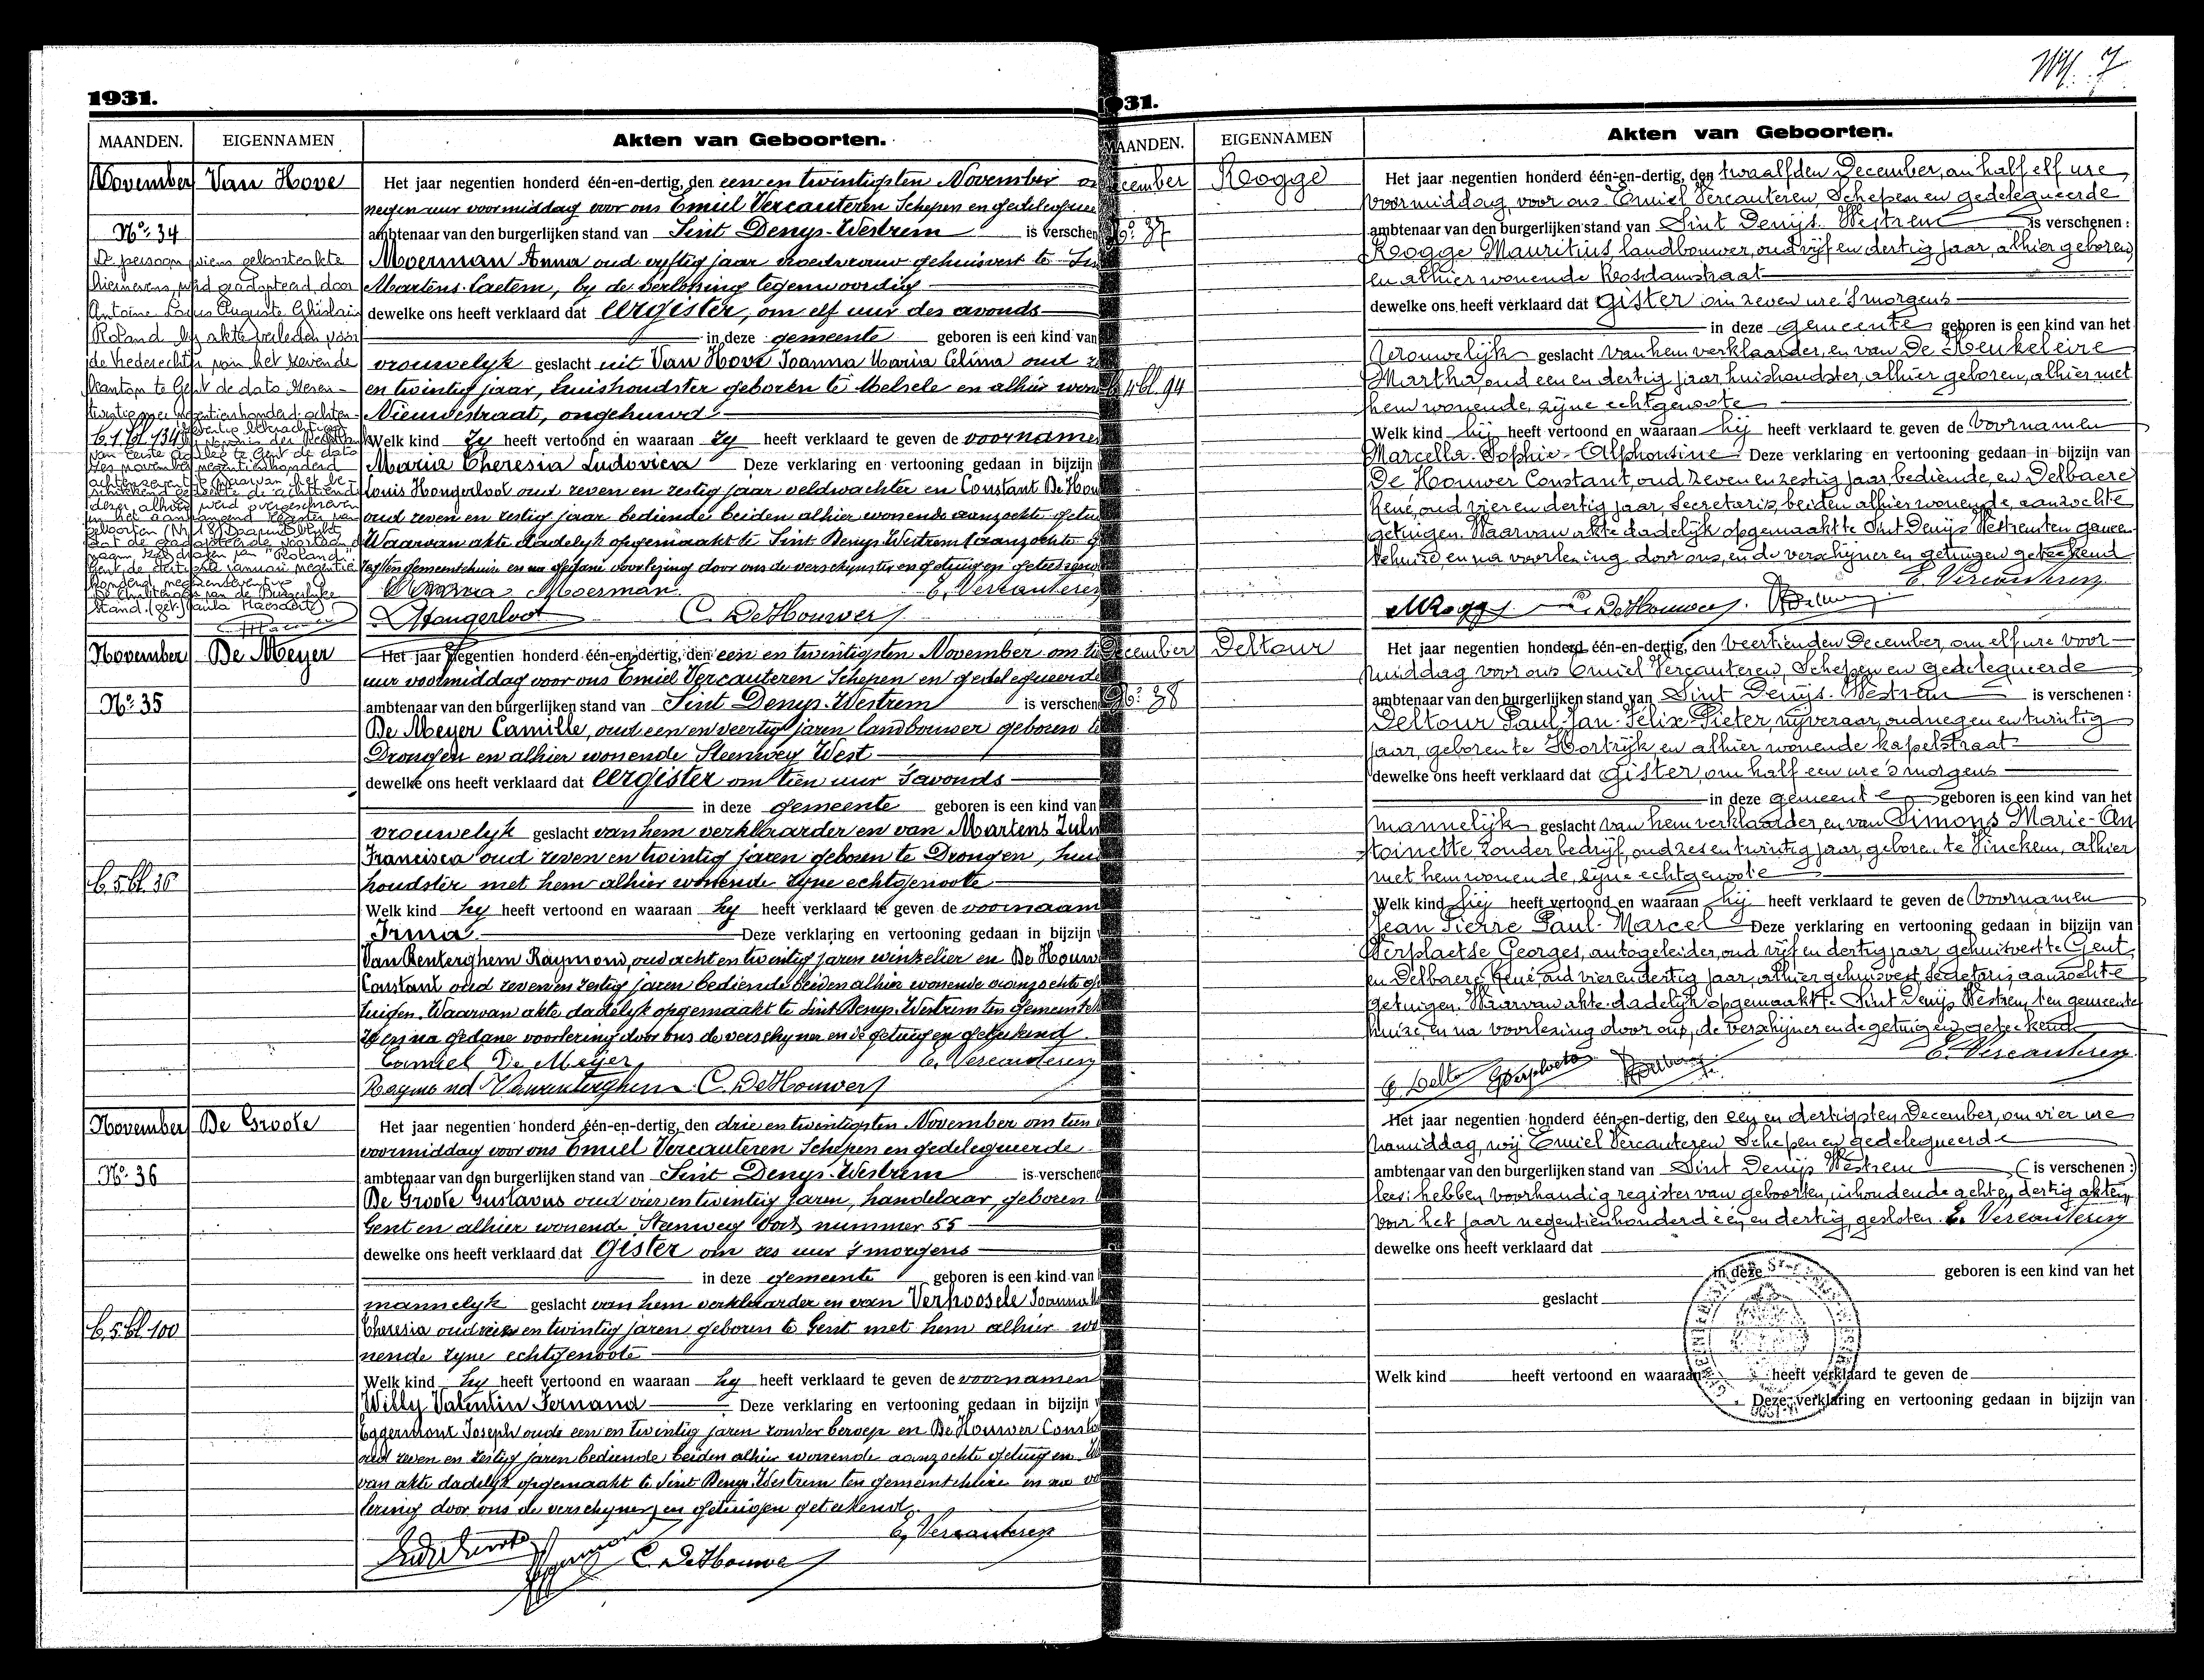 1931.
MAANDEN. EIGENNAMEN Akten van Geboorten.
November Van Hove Het jaar negentien honderd één-en-dertig, den een en twintigsten November
negen uur voormiddag voor ons Emiel Vercauteren Schepen en gedelegueer
Nº: 34 ambtenaar van den burgerlijken stand van Sint Denys-Westrem is verschen
De persoon wiens geboorteakte
hiernevens, werd geadopteerd door
Antoine Louis Auguste Ghislain
Roland bij akte verleden voor
de Vrederechter van het zevende
kanton te Gent de dato
negentienhonderd achten-
B.1.bl.134
van Eerste Aanleg te Gent de dato
zes november negentienhonderd
achtenzeventig waarvan het be-
schikkend gedeelte de achttiende
dezer, alhier werd overgeschreven
in het aanvangend register van
geboorten
dat de geadopteerde voortaan de
naam zal dragen van "Roland"
Gent, de dertigste januari negentien-
honderd negenenzeventig
De Ambtenaar van de Burgerlijke
Stand. (get.) Paula Haesaert
Moerman Anna oud vyftig jaar vroedvrouw gehuisvest te
Martens-Laetem, by de verlossing tegenwoordig
dewelke ons heeft verklaard dat eergister, om elf uur des avonds
in deze gemeente geboren is een kind van
vrouwelyk geslacht uit Van Hove Joanna Maria Celina oud
en twintig jaar, huishoudster geboren te Melsele en alhier won
Nieuwestraat, ongehuwd
Welk kind Zy heeft vertoond en waaraan Zy heeft verklaard te geven de voorname
Maria Theresia Ludovica Deze verklaring en vertooning gedaan in bijzijn
Louis Hongerloot oud zeven en zestig jaar veldwachter en Constant De Hou
oud zeven en zestig jaar bediende beiden alhier wonende aanzochte getui
Waarvan akte dadelyk opgemaakt te Sint Denys Westrem
ten gemeentehuize en na gedane voorlezing door ons de verschynster en getuigen geteekend
Anna Moerman E. Vercauteren
L Hongerloot C. De Houwer
November De Meyer Het jaar negentien honderd één-en-dertig, den een en twintigsten November om ti
uur voormiddag voor ons Emiel Vercauteren Schepen en gedelegueerde
Nº: 35 ambtenaar van den burgerlijken stand van Sint Denys-Westrem is verschen
De Meyer Camille, oud een en veertig jaren landbouwer geboren te
Drongen en alhier wonende Steenweg West
dewelke ons heeft verklaard dat eergister om tien uur 's avonds
in deze gemeente geboren is een kind van
vrouwelyk geslacht van hem verklaarder en van Martens
Francisca oud zeven en twintig jaren geboren te Drongen, huis
B.5.bl.36 houdster met hem alhier wonende zyne echtgenoote
Welk kind hy heeft vertoond en waaraan hy heeft verklaard te geven de voornaam
Irma Deze verklaring en vertooning gedaan in bijzijn
Van Renterghem Raymond, oud acht en twintig jaren winkelier en De Houw
Constant oud zeven en zestig jaren bediende beiden alhier wonende aanzochte ge
tuigen. Waarvan akte dadelyk opgemaakt te Sint Denys-Westrem ten gemeenteh
ize en na gedane voorlezing door ons de verschyner en de getuigen geteekend
Camiel De Meijer E. Vercauteren
Raymond Vanrenterghem C. De Houwer
November De Groote Het jaar negentien honderd één-en-dertig, den drie en twintigsten November om tien
voormiddag voor ons Emiel Vercauteren Schepen en gedelegueerde
Nº: 36 ambtenaar van den burgerlijken stand van Sint Denys-Westrem is verschene
De Groote Gustavus oud vier en twintig jaren, handelaar, geboren
Gent en alhier wonende Steenweg Oost nummer 55
dewelke ons heeft verklaard dat Gister om zes uur 's morgens
in deze gemeente geboren is een kind van
mannelyk geslacht van hem verklaarder en van Verhoosele Joanna
B.5.bl.100 Theresia oud vier en twintig jaren geboren te Gent met hem alhier wo
nende zyne echtgenoote
Welk kind hy heeft vertoond en waaraan hy heeft verklaard te geven de voornamen
Willy Valentin Fernand Deze verklaring en vertooning gedaan in bijzijn
Eggermont Joseph oud een en twintig jaren zonder beroep en De Houwer Consta
oud zeven en zestig jaren bediende beiden alhier wonende aanzochte getuigen. W
van akte dadelyk opgemaakt te Sint Denys-Westrem ten gemeentehuize en na vo
lezing door ons de verschyner en getuigen geteekend.
E. Vercauteren
C. De Houwer
7
31.
AANDEN. EIGENNAMEN Akten van Geboorten.
ecember Rogge Het jaar negentien honderd één-en-dertig, den twaalfden December, om half elf ure
voormiddag, voor ons Emiel Vercauteren, Schepen en gedelegueerde
Nº: 37 ambtenaar van den burgerlijken stand van Sint Denijs-Westrem is verschenen:
Rogge Mauritius, landbouwer, oud vijf en dertig jaar, alhier geboren
en alhier wonende Rosdamstraat
dewelke ons heeft verklaard dat Gister om zeven ure 's morgens
in deze gemeente geboren is een kind van het
Vrouwelijk geslacht van hem verklaarder, en van De Keukeleire
B.4.bl.94 Martha, oud een en dertig jaar, huishoudster, alhier geboren, alhier met
hem wonende, zijne echtgenoote
Welk kind hij heeft vertoond en waaraan hij heeft verklaard te geven de Voornamen
Marcella-Sophie-Alphonsine Deze verklaring en vertooning gedaan in bijzijn van
De Houwer Constant, oud zeven en zestig jaar, bediende, en Delbaere
René, oud vier en dertig jaar, Secretaris, beiden alhier wonende, aanzochte
getuigen. Waarvan akte dadelijk opgemaakt te Sint Denijs Westrem ten gemeen-
tehuize en na voorlezing door ons, en de verschijner en getuigen geteekend
E. Vercauteren
M Rogge C. De Houwer R Delbaere
ecember Deltour Het jaar negentien honderd één-en-dertig, den veertienden December, om elf ure voor-
middag voor ons Emiel Vercauteren, Schepen en gedelegueerde
Nº: 38 ambtenaar van den burgerlijken stand van Sint Denijs-Westrem is verschenen:
Deltour Paul-Jan-Félix-Pieter, nijveraar, oud negen en twintig
jaar, geboren te Kortrijk en alhier wonende kapelstraat
dewelke ons heeft verklaard dat Gister, om half een ure 's morgens
in deze gemeente geboren is een kind van het
Mannelijk geslacht van hem verklaarder, en van Simons Marie-An
toinette, zonder bedrijf, oud zes en twintig jaar, geboren te Vinckem, alhier
met hem wonende, zijne echtgenoote
Welk kind hij heeft vertoond en waaraan hij heeft verklaard te geven de Voornamen
Jean Pierre Paul-Marcel Deze verklaring en vertooning gedaan in bijzijn van
Verplaetse Georges, autogeleider, oud vijf en dertig jaar, gehuisvest te Gent,
en Delbaere René, oud vier en dertig jaar, alhier gehuisvest, Secretaris, aanzochte
getuigen. Waarvan akte dadelijk opgemaakt te Sint Denijs Westrem, ten gemeente
huize, en na voorlezing door ons, de verschijner en de getuigen geteekend
E. Vercauteren
G Verplaetse R Delbaere
Het jaar negentien honderd één-en-dertig, den een en dertigsten December, om vier ure
namiddag, wij Emiel Vercauteren Schepen en gedelegueerde
ambtenaar van den burgerlijken stand van Sint Denijs Westrem (is verschenen:)
lees: hebben voorhandig register van geboorten, inhoudende acht en dertig akten,
voor het jaar negentienhonderd één en dertig, gesloten. E. Vercauteren
dewelke ons heeft verklaard dat
in deze geboren is een kind van het
geslacht
Welk kind heeft vertoond en waaraan heeft verklaard te geven de
Deze verklaring en vertooning gedaan in bijzijn van